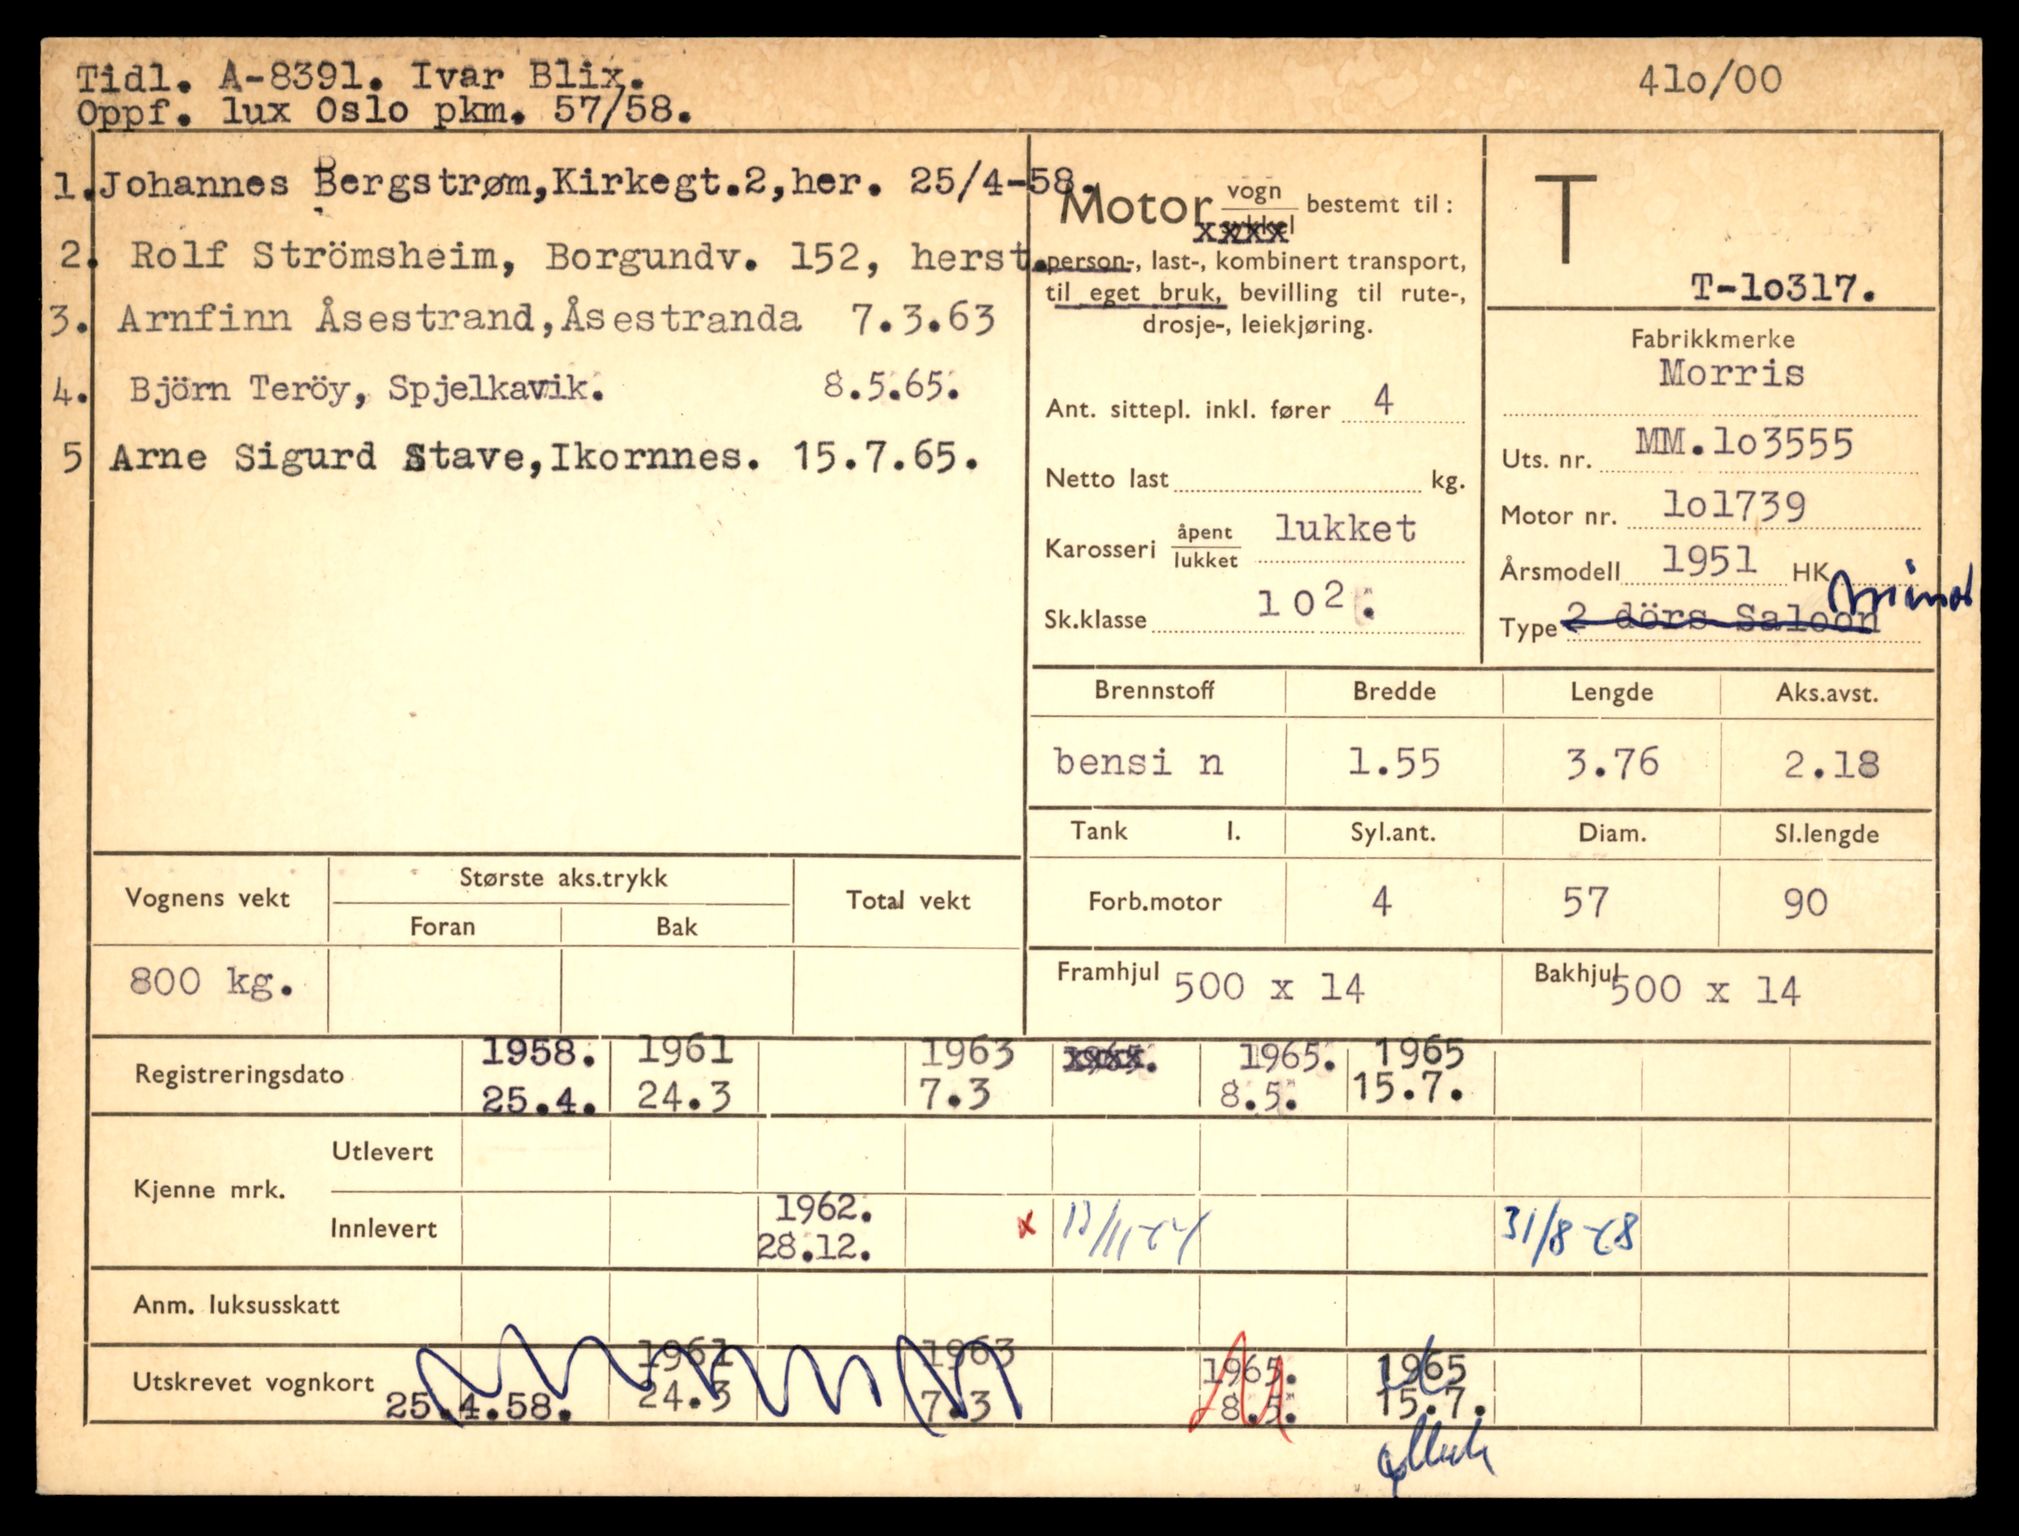 Tidl. A-8391. Ivar Blix.
Oppf. lux Oslo pkm. 57/58.
41o/00
1. Johannes Bergstrøm,Kirkegt.2,her. 25/4-58.
2. Rolf Strömsheim, Borgundv. 152, herst.
3. Arnfinn Åsestrand,Åsestranda 7.3.63
4. Björn Teröy, Spjelkavik. 8.5.65.
5 Arne Sigurd Stave,Ikornnes. 15.7.65.
Motor vogn bestemt til:
sykkel
xxxx
person-, last-, kombinert transport,
til eget bruk, bevilling til rute-,
drosje-, leiekjøring.
Ant. sittepl. inkl. fører 4
Netto last kg.
Karosseri åpent lukket
lukket
Sk.klasse 102.
T
T-1o317.
Fabrikkmerke
Morris
Uts. nr. MM.1o3555
Motor nr. 1o1739
Årsmodell 1951 HK
Type 2 dörs Saloon Minor
Brennstoff Bredde Lengde Aks.avst.
bensi n 1.55 3.76 2.18
Tank l. Syl.ant. Diam. Sl.lengde
Forb.motor 4 57 90
Framhjul 500 x 14 Bakhjul 500 x 14
Vognens vekt Største aks.trykk Total vekt
Foran Bak
800 kg.
Registreringsdato 1958. 1961 1963 1965. 1965. 1965
25.4. 24.3 7.3 8.5. 15.7.
Kjenne mrk. Utlevert
Innlevert 1962. x 31/8-68
28.12.
Anm. luksusskatt
Utskrevet vognkort 1961 1963 1965. 1965
25.4.58. 24.3 7.3 8.5. 15.7.